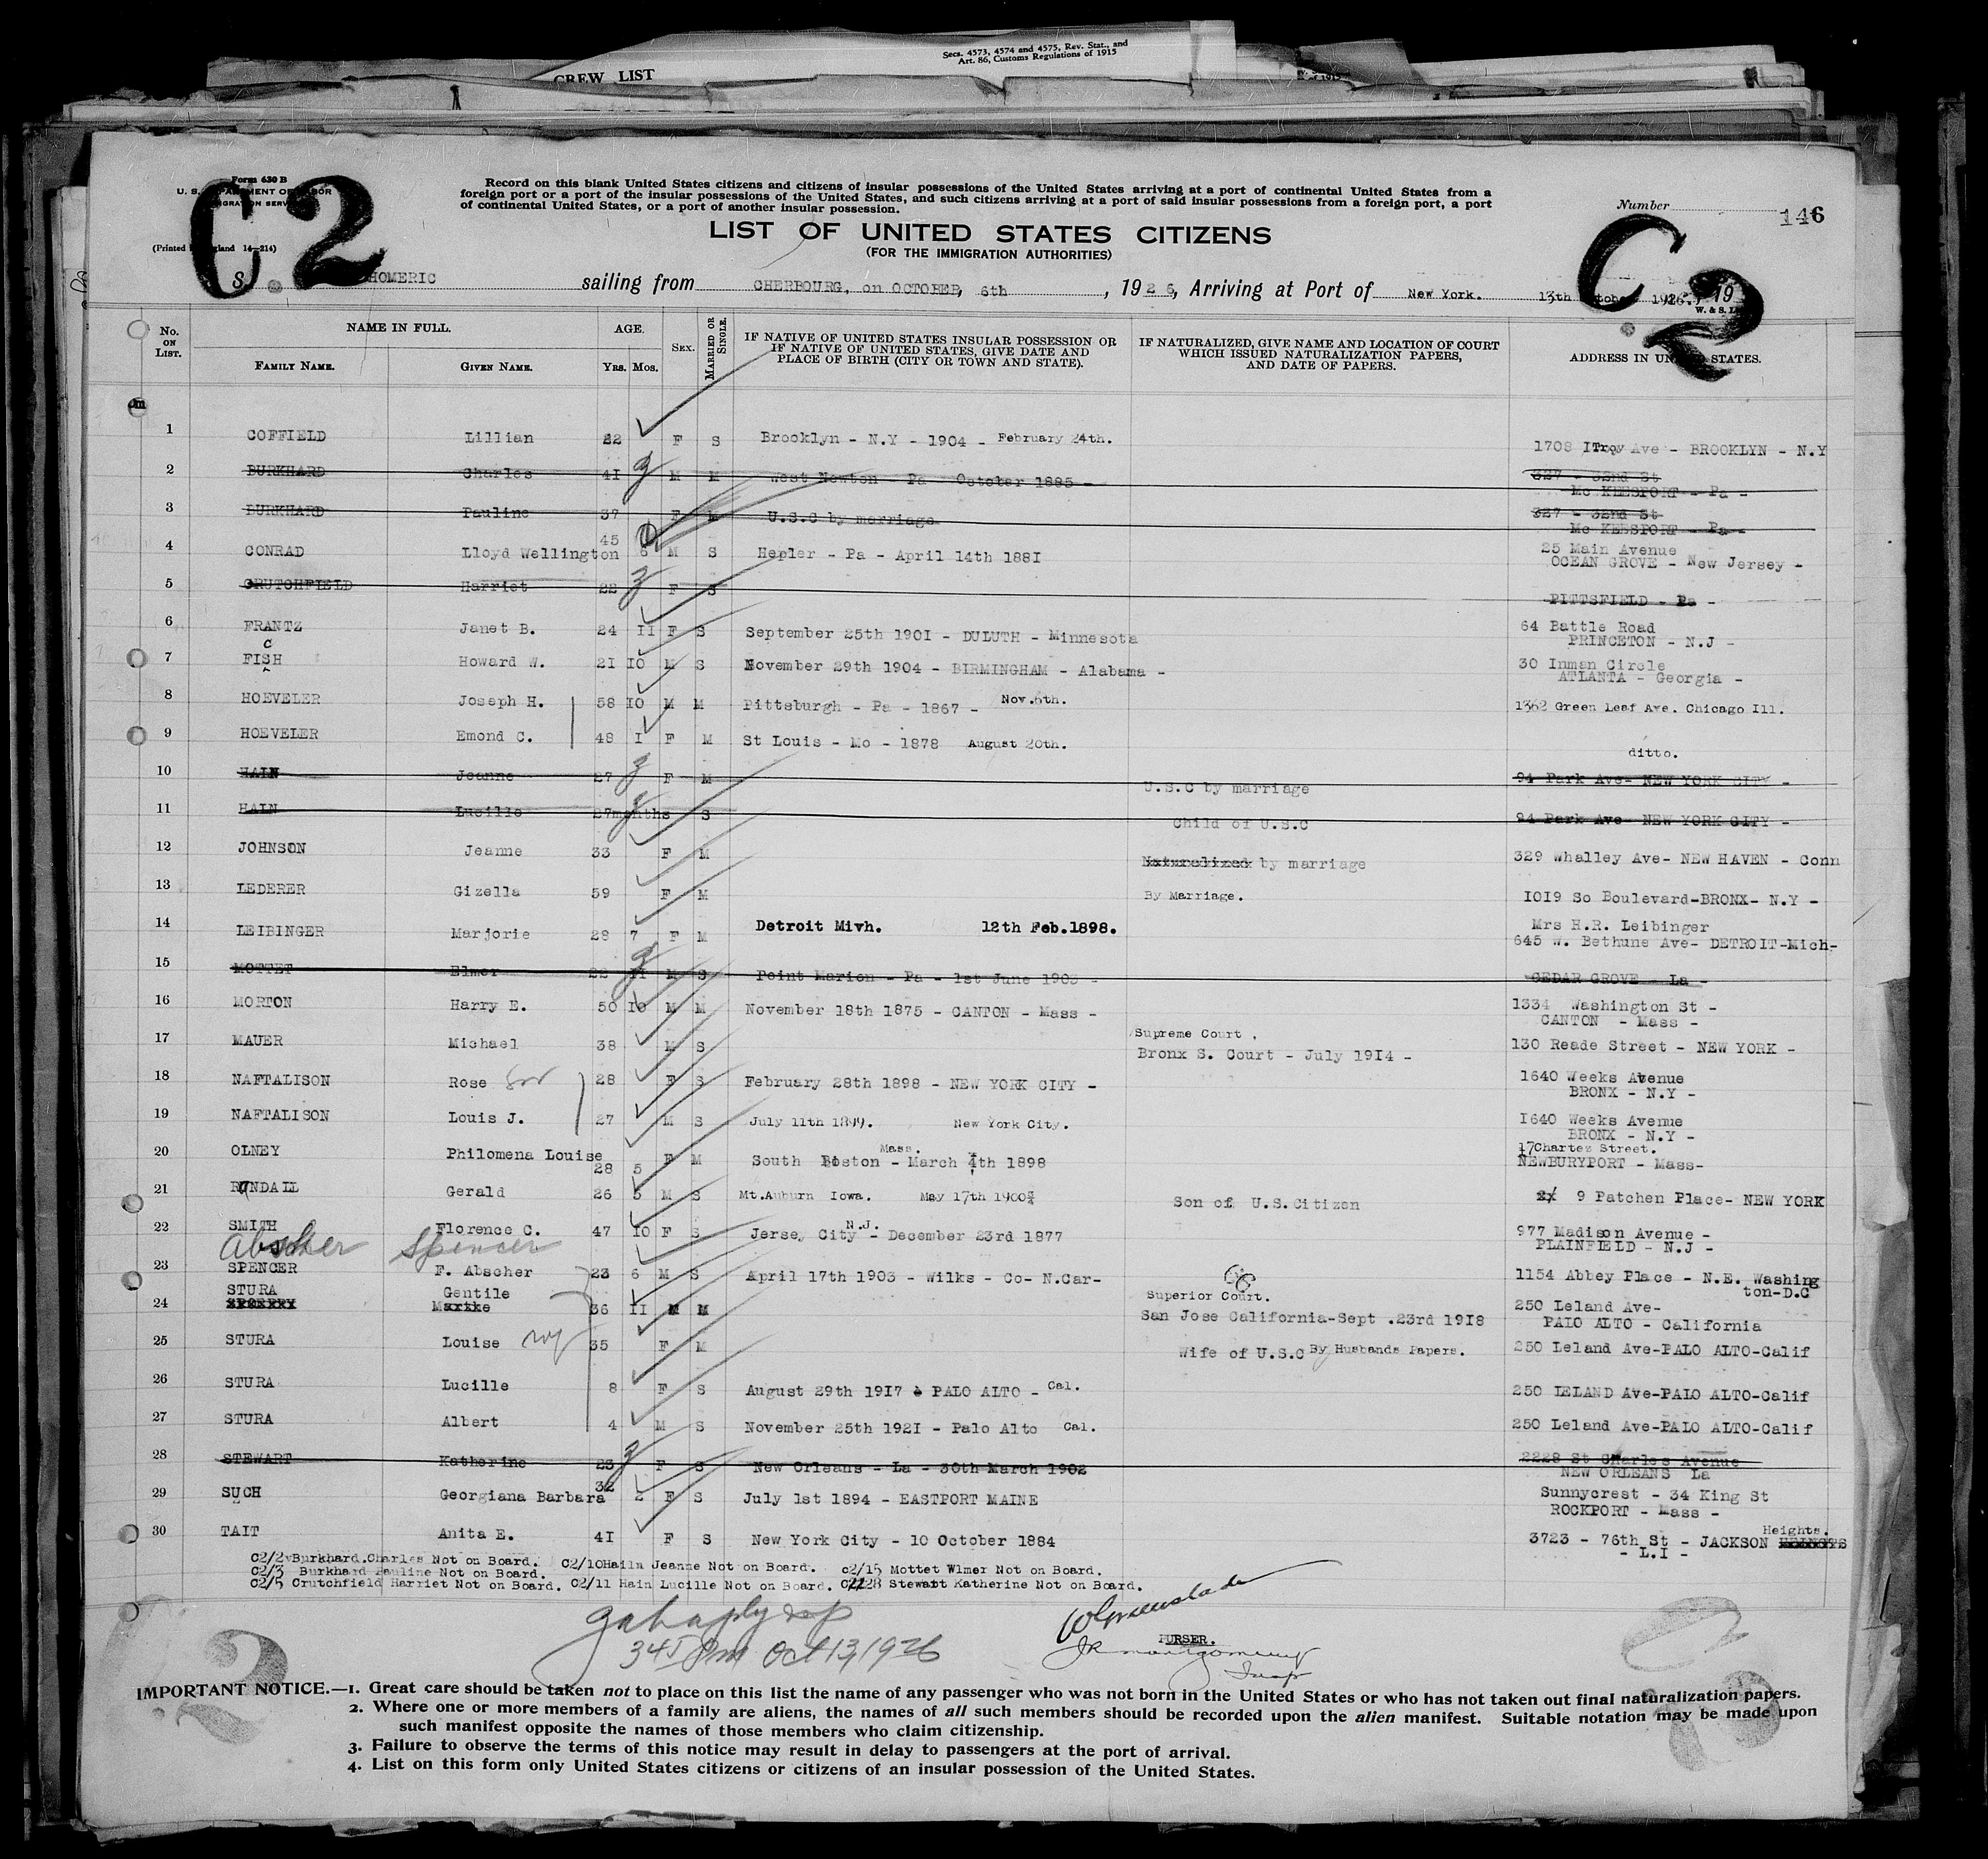 Secs. 4573, 4574 and 4575, Rev. Stat., and
Art. 86, Customs Regulations of 1915
CREW LIST
Form 630 B
U. S. DEPARTMENT OF LABOR
IMMIGRATION SERVICE
(Printed in England 14—214)
C2
Record on this blank United States citizens and citizens of insular possessions of the United States arriving at a port of continental United States from a
foreign port or a port of the insular possessions of the United States, and such citizens arriving at a port of said insular possessions from a foreign port, a port
of continental United States, or a port of another insular possession.
Number 146
C2
LIST OF UNITED STATES CITIZENS
(FOR THE IMMIGRATION AUTHORITIES)
S. HOMERIC sailing from CHERBOURG, on OCTOBER, 6th, 1926, Arriving at Port of New York. 13th October 1926. 19
No. ON LIST. NAME IN FULL. AGE. SEX. MARRIED OR SINGLE. IF NATIVE OF UNITED STATES INSULAR POSSESSION OR IF NATIVE OF UNITED STATES, GIVE DATE AND PLACE OF BIRTH (CITY OR TOWN AND STATE). IF NATURALIZED, GIVE NAME AND LOCATION OF COURT WHICH ISSUED NATURALIZATION PAPERS, AND DATE OF PAPERS. ADDRESS IN UNITED STATES.
FAMILY NAME. GIVEN NAME. YRS. MOS.
1 COFFIELD Lillian 22 F S Brooklyn - N.Y - 1904 - February 24th. 1708 Troy Ave - BROOKLYN - N.Y
2 BURKHARD Charles 41 M M West Newton - Pa October 1885 - 327 - 32nd St
Mc KEESPORT - Pa -
3 BURKHARD Pauline 37 F M U.S.C by marriage 327 - 32nd St
Mc KEESPORT - Pa -
4 CONRAD Lloyd Wellington 45 6 M S Hepler - Pa - April 14th 1881 25 Main Avenue
OCEAN GROVE - New Jersey -
5 CRUTCHFIELD Harriet 22 F S PITTSFIELD - Pa -
6 FRANTZ Janet B. 24 11 F S September 25th 1901 - DULUTH - Minnesota 64 Battle Road
PRINCETON - N.J -
7 FISCH Howard W. 21 10 M S November 29th 1904 - BIRMINGHAM - Alabama - 30 Inman Circle
ATLANTA - Georgia -
8 HOEVELER Joseph H. 58 10 M M Pittsburgh - Pa - 1867 - Nov. 6th. 1362 Green Leaf Ave. Chicago Ill.
9 HOEVELER Emond C. 48 1 F M St Louis - Mo - 1878 August 20th. ditto.
10 HAIN Jeanne 27 F M U.S.C by marriage 94 Park Ave- NEW YORK CITY -
11 HAIN Lucille 27months S Child of U.S.C 94 Park Ave- NEW YORK CITY -
12 JOHNSON Jeanne 33 F M Naturalized by marriage 329 Whalley Ave- NEW HAVEN - Conn
13 LEDERER Gizella 59 F M By Marriage. 1019 So Boulevard-BRONX- N.Y -
14 LEIBINGER Marjorie 28 7 F M Detroit Mivh. 12th Feb.1898. Mrs H.R. Leibinger
645 W. Bethune Ave- DETROIT-Mich-
15 MOTTET Elmer 22 11 M S Point Marion - Pa - 1st June 1903 - CEDAR GROVE - La -
16 MORTON Harry E. 50 10 M M November 18th 1875 - CANTON - Mass - 1334 Washington St -
CANTON - Mass -
17 MAUER Michael 38 M S Supreme Court.
Bronx S. Court - July 1914 - 130 Reade Street - NEW YORK -
18 NAFTALISON Rose 28 F S February 28th 1898 - NEW YORK CITY - 1640 Weeks Avenue
BRONX - N.Y -
19 NAFTALISON Louis J. 27 M S July 11th 1899. New York City. 1640 Weeks Avenue
BRONX - N.Y -
20 OLNEY Philomena Louise 28 5 F M South Boston Mass. - March 4th 1898 17 Charter Street.
NEWBURYPORT - Mass-
21 RANDALL Gerald 26 5 M S Mt.Auburn Iowa. May 17th 1900 Son of U.S.Citizen 9 Patchen Place- NEW YORK
22 SMITH Florence C. 47 10 F S Jersey City N.J. - December 23rd 1877 977 Madison Avenue -
PLAINFIELD - N.J -
Absher Spencer
23 SPENCER F. Abscher 23 6 M S April 17th 1903 - Wilks - Co- N.Car- 1154 Abbey Place - N.E. Washing
ton-D.C
24 STURA Gentile 36 11 M M Superior Court.
San Jose California-Sept.23rd 1918 250 Leland Ave-
PALO ALTO - California
25 STURA Louise 35 F M Wife of U.S.C By Husbands Papers. 250 Leland Ave-PALO ALTO-Calif
26 STURA Lucille 8 F S August 29th 1917 PALO ALTO - Cal. 250 LELAND Ave-PALO ALTO-Calif
27 STURA Albert 4 M S November 25th 1921 - Palo Alto Cal. 250 Leland Ave-PALO ALTO-Calif
28 STEWART Katherine 23 F S New Orleans - La - 30th March 1902 2228 St Charles Avenue
NEW ORLEANS La
29 SUCH Georgiana Barbara 32 2 F S July 1st 1894 - EASTPORT MAINE Sunnycrest - 34 King St
ROCKPORT - Mass -
30 TAIT Anita E. 41 F S New York City - 10 October 1884 3723 - 76th St - JACKSON Heights.
- L.I -
C2/2 Burkhard.Charles Not on Board. C2/10 Hailn Jeanne Not on Board. C2/15 Mottet Wlmer Not on Board.
C2/3 Burkhard Pauline Not on Board.
C2/5 Crutchfield Harriet Not on Board. C2/11 Hain Lucille Not on Board. C2/28 Stewart Katherine Not on Board.
345 PM Oct 13, 1926
PURSER.
JR Montgomery
Insp
IMPORTANT NOTICE.—1. Great care should be taken not to place on this list the name of any passenger who was not born in the United States or who has not taken out final naturalization papers.
2. Where one or more members of a family are aliens, the names of all such members should be recorded upon the alien manifest. Suitable notation may be made upon
such manifest opposite the names of those members who claim citizenship.
3. Failure to observe the terms of this notice may result in delay to passengers at the port of arrival.
4. List on this form only United States citizens or citizens of an insular possession of the United States.